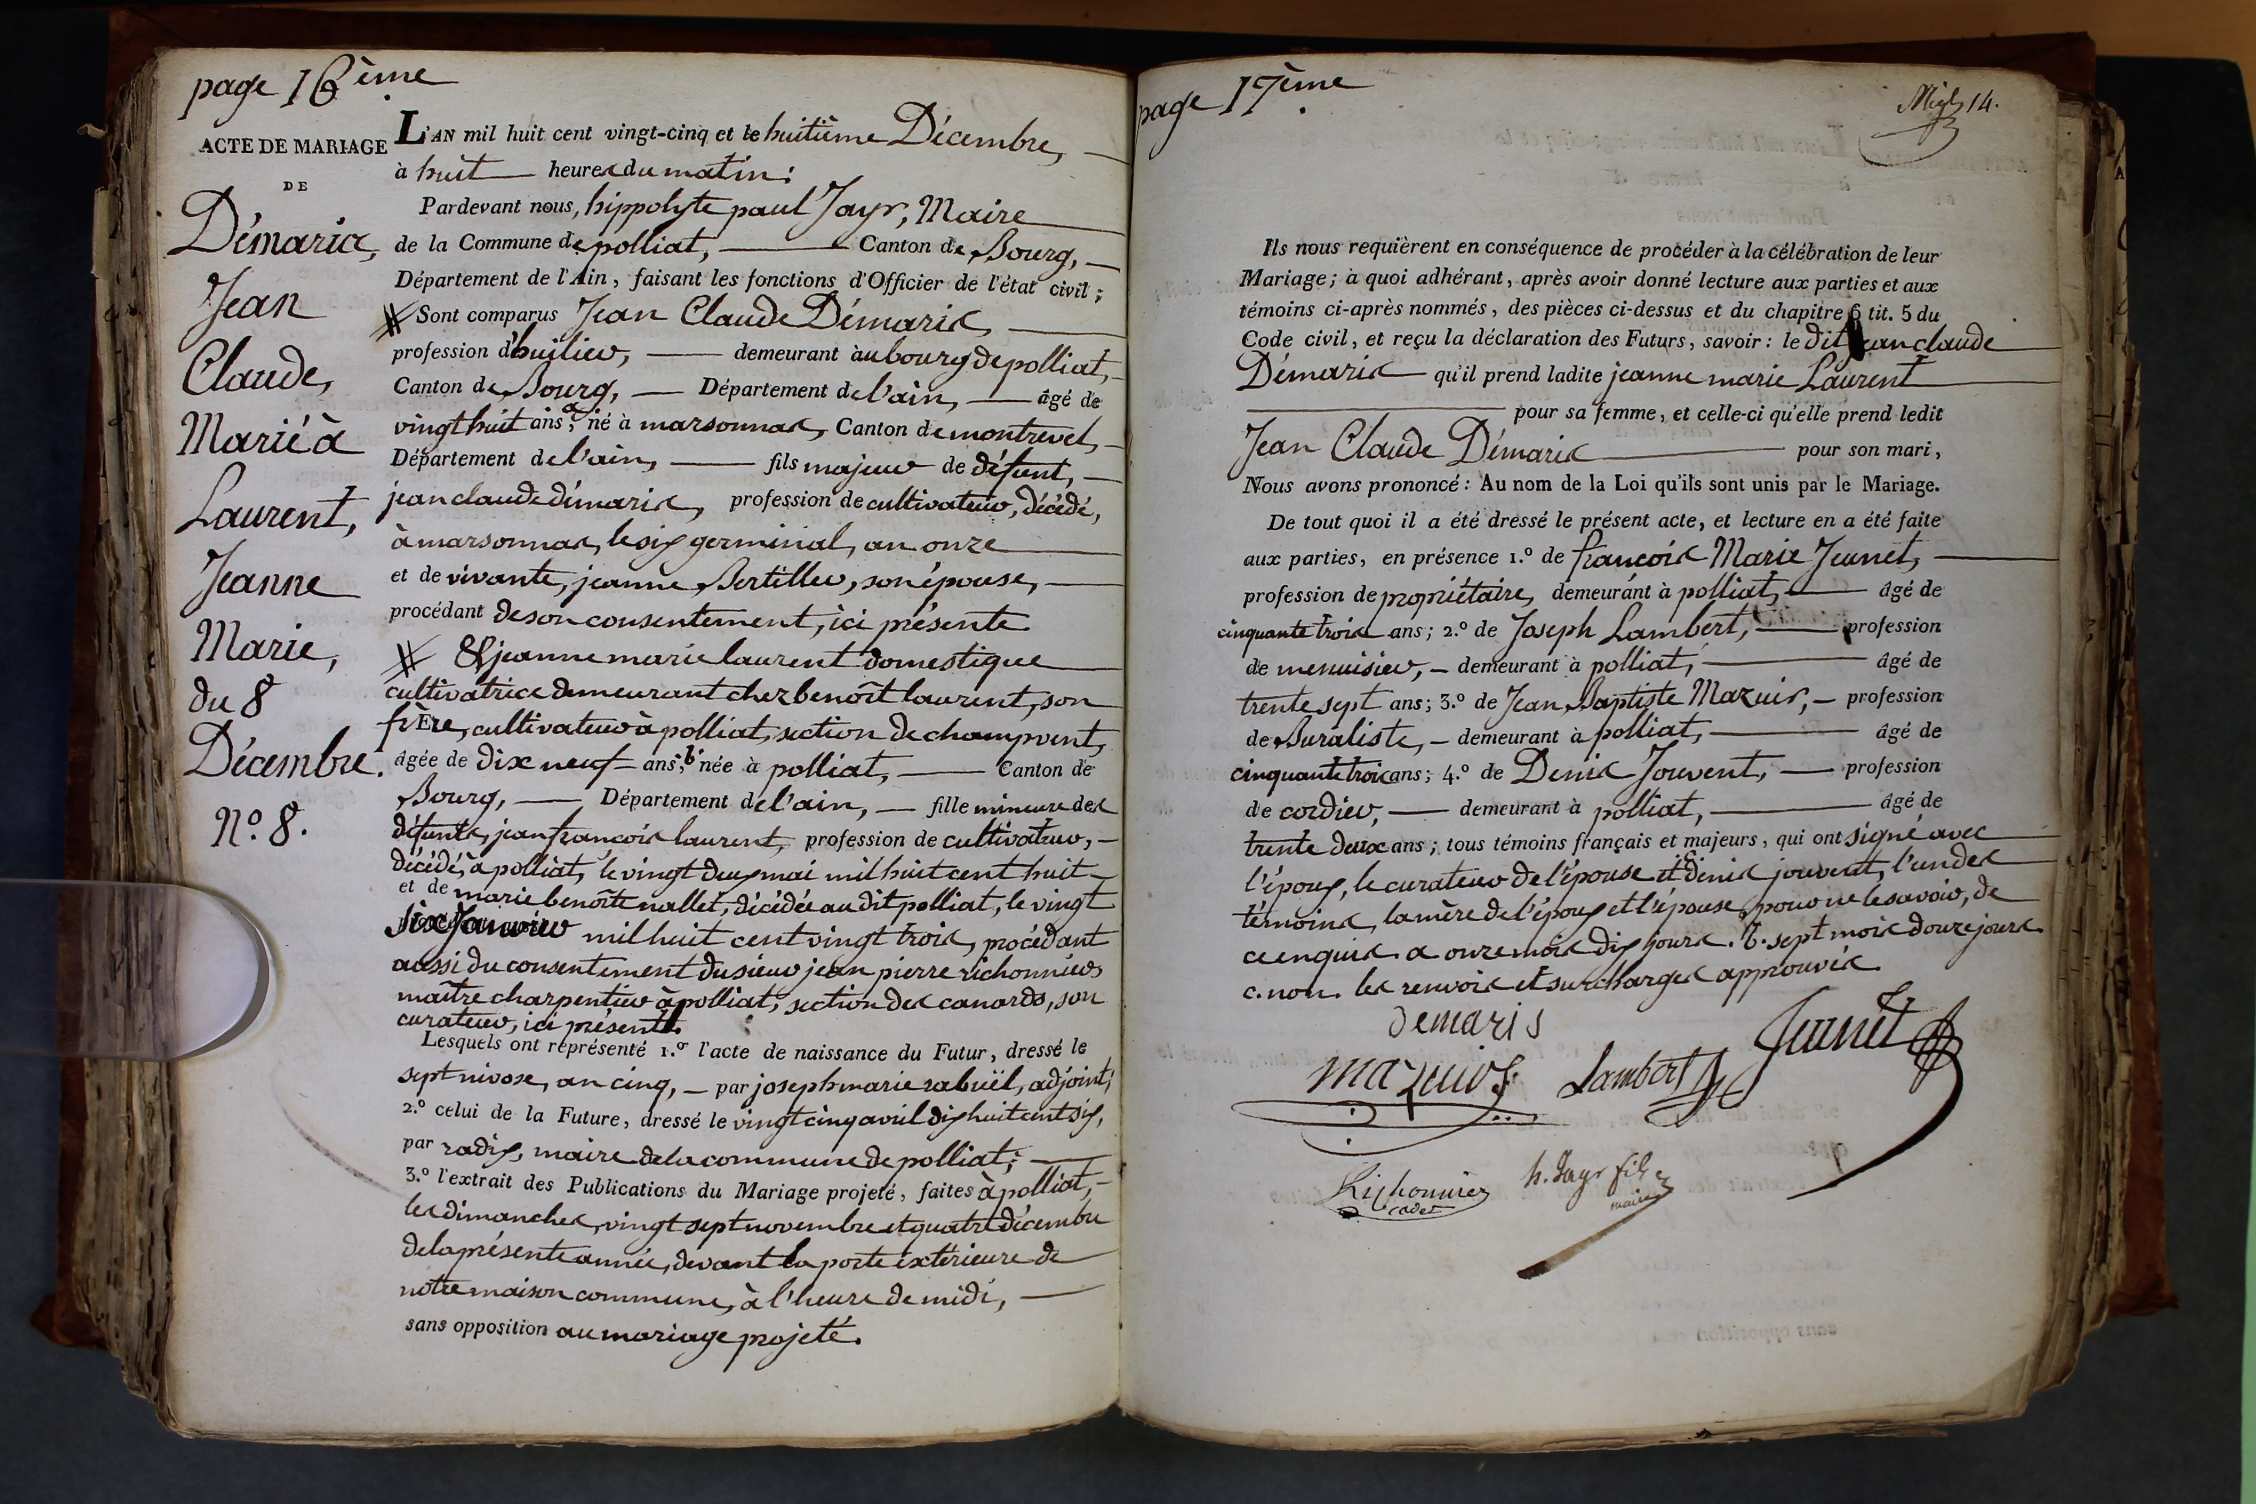 page 16ème
ACTE DE MARIAGE
DE
Démaris,
Jean
Claude,
Marié à
Laurent,
Jeanne
Marie,
du 8
Décembre.
N.o 8.
L'AN mil huit cent vingt-cinq et le huitième Décembre,
à huit heures du matin;
Pardevant nous, hippolyte paul Jayr, Maire
de la Commune de polliat, Canton de Bourg,
Département de l'Ain, faisant les fonctions d'Officier de l'état civil;
Sont comparus Jean Claude Démaris
profession d'huilier, demeurant au bourg de polliat,
Canton de Bourg, Département de l'ain, âgé de
vingt huit ans, a né à marsonnas, Canton de montrevel,
Département de l'ain, fils majeur de défunt,
jean claude démaris, profession de cultivateur, décédé,
à marsonnas, le six germinal, an onze
et de vivante, jeanne Bertiller, son épouse,
procédant de son consentement, ici présente
Et jeanne marie laurent domestique
cultivatrice demeurant chez benoît laurent, son
frère, cultivateur à polliat, section de champvent,
âgée de dix neuf ans, b née à polliat, Canton de
Bourg, Département de l'ain, fille mineure des
défunts, jean françois laurent, profession de cultivateur,
décédé, à polliat, le vingt deux mai mil huit cent huit
et de marie benoîte nallet, décédée au dit polliat, le vingt
six Janvier mil huit cent vingt trois, procédant
aussi du consentement du sieur jean pierre richonnier,
maître charpentier à polliat, section des canards, son
curateur, ici présent.
Lesquels ont représenté 1.er l'acte de naissance du Futur, dressé le
sept nivose, an cinq, par joseph marie rabuël, adjoint;
2.o celui de la Future, dressé le vingt cinq avril dix huit cent six,
par radix, maire de la commune de polliat;
3.o l'extrait des Publications du Mariage projeté, faites à polliat,
les dimanches, vingt sept novembre et quatre décembre
de la présente année, devant la porte extérieure de
notre maison commune, à l'heure de midi,
sans opposition au mariage projeté.
page 17ème
14.
Ils nous requièrent en conséquence de procéder à la célébration de leur
Mariage; à quoi adhérant, après avoir donné lecture aux parties et aux
témoins ci-après nommés, des pièces ci-dessus et du chapitre 6 tit. 5 du
Code civil, et reçu la déclaration des Futurs, savoir: le dit jean claude
Démaris qu'il prend ladite jeanne marie Laurent
pour sa femme, et celle-ci qu'elle prend ledit
Jean Claude Démaris pour son mari,
Nous avons prononcé: Au nom de la Loi qu'ils sont unis par le Mariage.
De tout quoi il a été dressé le présent acte, et lecture en a été faite
aux parties, en présence 1.o de françois Marie Jeunet,
profession de propriétaire, demeurant à polliat, âgé de
cinquante trois ans; 2.o de Joseph Lambert, profession
de menuisier, demeurant à polliat, âgé de
trente sept ans; 3.o de Jean Baptiste Mazuir, profession
de Buraliste, demeurant à polliat, âgé de
cinquante trois ans; 4.o de Denis Jouvent, profession
de cordier, demeurant à polliat, âgé de
trente deux ans; tous témoins français et majeurs, qui ont signé avec
l'époux, le curateur de l'épouse et c denis jouvent, l'un des
témoins, la mère de l'époux et l'épouse, pour ne le savoir, de
ce enquis. a onze mois dix jours. b. sept mois douze jours.
c. non. les renvois et surcharges approuvés.
demaris
mazuir
Lambert
Jeunet
Richonnier
cadet
h. Jayr fils
maire